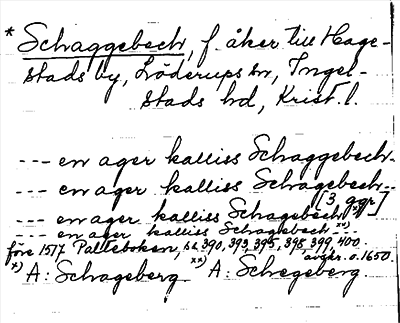 * Schaggebech, f. åker till Hage-
stads by, Löderups sn, Ingel-
stads hd, Krist. l.
--- en ager kalliss Schaggebech.
--- en ager kalliss Schagebech --
[3 ggr]
--- en ager kalliss Schagebech x)
--- en ager kalliss Schagebech xx) ---
före 1577 Palteboken, s. 390, 393, 395, 398, 399, 400
avskr. o. 1650.
x) A: Schageberg xx) A: Schegeberg